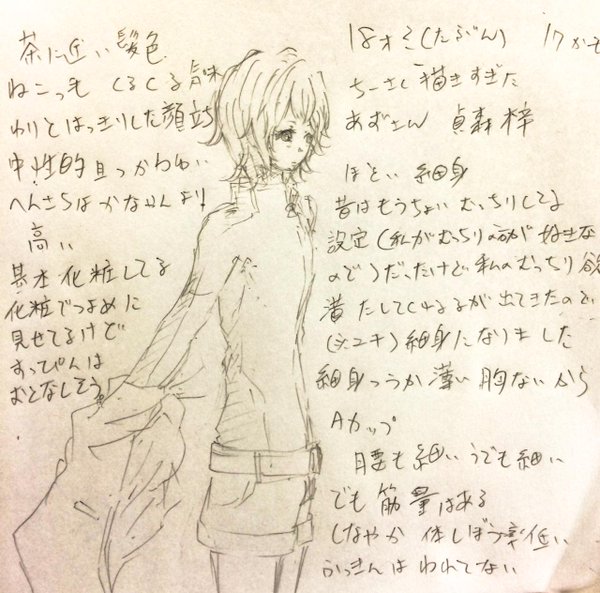 茶に近い髪色
ねこっ毛 くるくる気味
わりとはっきりした顔立
中性的且つかわいい
へんさちはかなかんより
高い
基本化粧してる
化粧でつよめに
見せてるけど
すっぴんは
おとなしそう
18才ぐらい(たぶん) 17かも
ちーさく描きすぎた
あずさん 貞森梓
ほそい 細身
昔はもうちょいむっちりしてる
設定(私がむっちりの方が好きな
ので)だったけど私のむっちり欲
満たしてくれる が出てきたので
(シユキ)細身になりました
細身っつうか薄い 胸ないから
Aカップ
腰も細いうでも細い
でも筋量はある
しなやか 体しぼう率低い
ふっきんはわれてない